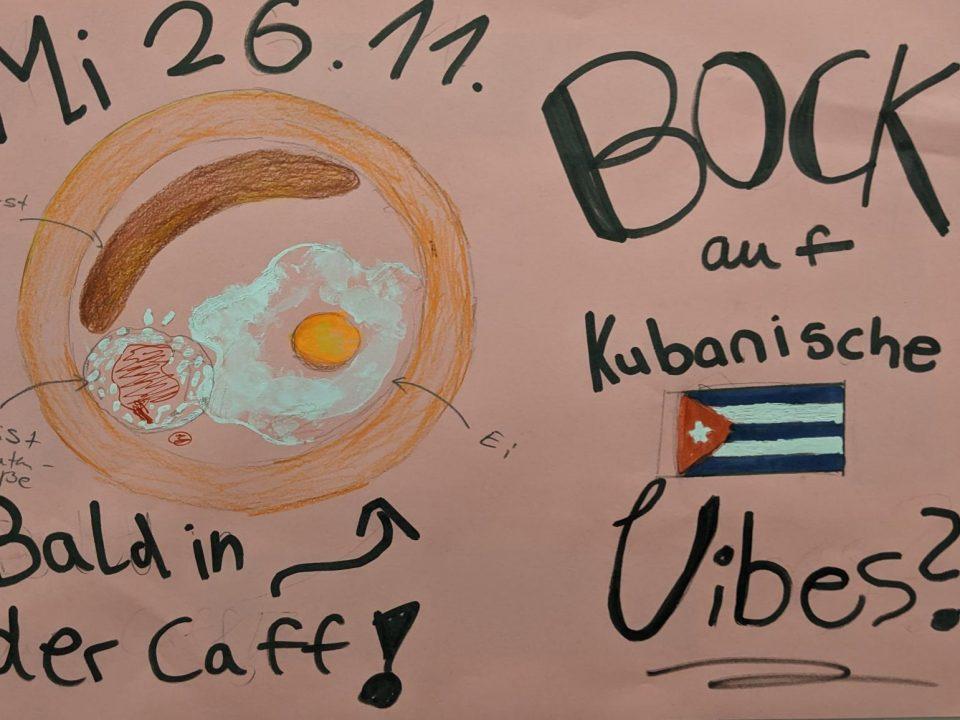 Mi 26.11.
Ei
Bald in
der Caff!
BOCK
auf
Kubanische
Vibes?